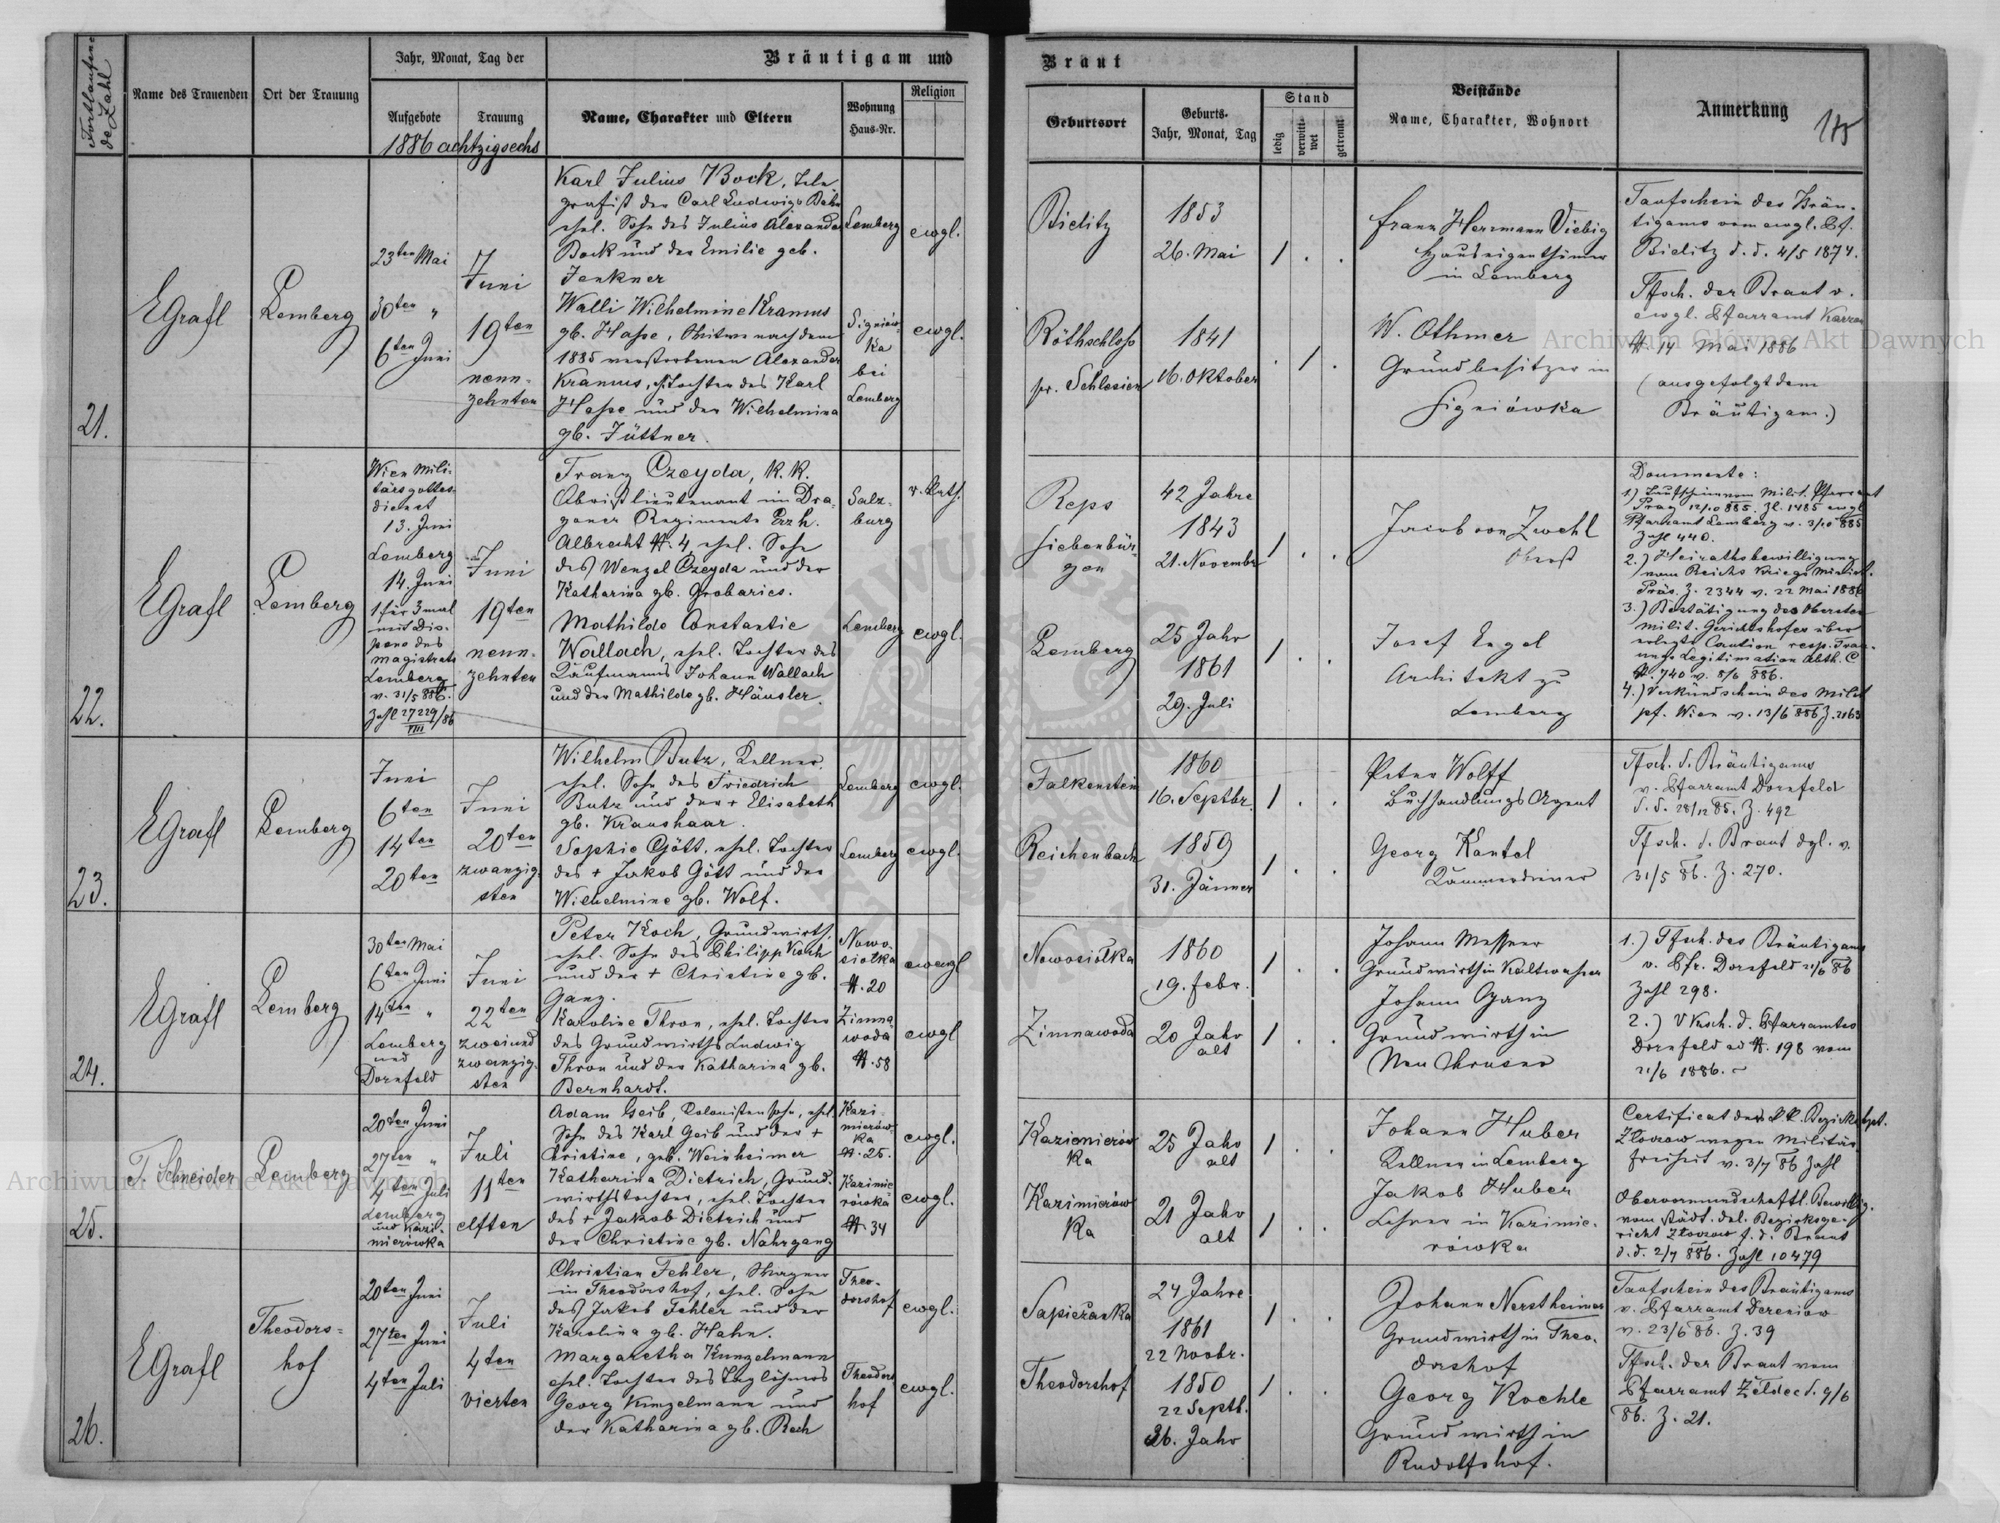 Fortlaufende Zahl
Name des Trauenden
Ort der Trauung
Jahr, Monat, Tag der
Aufgebote
Trauung
1886 achtzigsechs
Bräutigam und
Name, Charakter und Eltern
Wohnung
Haus-Nr.
Religion
Braut
Geburtsort
Geburts-
Jahr, Monat, Tag
Stand
ledig
verwittwet
getrennt
Beistände
Name, Charakter, Wohnort
Anmerkung
21.
EGrafl
Lemberg
23ten Mai
30ten "
6ten Juni
Juni
19ten
neun-
zehnten
Karl Julius Bock, Tele-
grafist der Carl Ludwigs Bahn
ehel. Sohn des Julius Alexander
Bock und der Emilie geb.
Jenkner
Walli Wilhelmine Kramus
gb. Hasse, Witwe nach dem
1885 verstorbenen Alexander
Kramus, Tochter des Karl
Hasse und der Wilhelmina
gb. Jüttner.
Lemberg
Signiów-
ka
bei
Lemberg
evgl.
evgl.
Bielitz
Röthschloss
pr. Schlesien
1853
26. Mai
1 . .
1841
16. Oktober
. 1 .
Franz Herrmann Viebig
Hauseigenthümer
in Lemberg
W. Othmer
Grundbesitzer in
Signiówka
Taufschein des Bräu-
tigams vom evgl. Pf.
Bielitz d. d. 4/5 1874.
Tfsch. der Braut v.
evgl. Pfarramt
N. 14 Mai 1886
(ausgefolgt dem
Bräutigam.)
22.
EGrafl
Lemberg
Wien Mili-
tärsgottes-
dienst
13. Juni
Lemberg
14. Juni
1 für 3mal
mit Dis-
pens des
Magistrats
Lemberg
v. 31/5 886.
Zahl 27229/86
III
Juni
19ten
neun-
zehnten
Franz Czeyda, K. K.
Obristlieutenant im Dra-
goner Regimente Erzh.
Albrecht N. 4 ehel. Sohn
des Wenzel Czeyda und der
Katharina gb. Grobarics.
Mathilde Constantie
Wallach, ehel. Tochter des
Kaufmanns Johann Wallach
und der Mathilde gb. Häusler.
Salz-
burg
Lemberg
r. kath.
evgl.
Reps
Siebenbür-
gen
Lemberg
42 Jahre
1843
21. Novembr
1 . .
25 Jahr
1861
29. Juli
1 . .
Jacob von Zwehl
Oberst
Josef Engel
Architekt zu
Lemberg
Documente:
1.) Taufschein vom Milit. Pfarramt
Prag 12/10 885. Zl. 1485 evgl.
Pfarramt Lemberg v. 3/10 885
Zahl 440.
2.) Heirathsbewilligung
vom Reichs Kriegs Minist.
Präs. Z. 2344 v. 22 Mai 1886
3.) Bestätigung des Obersten
Milit. Gerichtshofes über
erlegte Caution resp. Trau-
ungs Legitimation Abth. C
N. 740 v. 8/6 886.
4.) Verkündschein des Milit
pf. Wien v. 13/6 886 Z. 2163
23.
EGrafl
Lemberg
Juni
6ten
14ten
20ten
Juni
20ten
zwanzig-
sten
Wilhelm Butz, Kellner,
ehel. Sohn des Friedrich
Butz und der + Elisabeth
gb. Kraushaar.
Sophie Gött, ehel. Tochter
des + Jakob Gött und der
Wilhelmine gb. Wolf.
Lemberg
Lemberg
evgl.
evgl.
Falkenstein
Reichenbach
1860
16. Septbr.
1 . .
1859
31. Jänner
1 . .
Peter Wolff
Buchhandlungs Agent
Georg Kantel
Kammerdiener
Tfsch. d. Bräutigams
v. Pfarramt Dornfeld
d. d. 28/12 85. Z. 492
Tfsch. d. Braut dgl. v.
31/5 86. Z. 270.
24.
EGrafl
Lemberg
30ten Mai
6ten Juni
14ten "
Lemberg
und
Dornfeld
Juni
22ten
zweiund
zwanzig-
sten
Peter Koch, Grundwirth,
ehel. Sohn des Philipp Koch
und der + Christine gb.
Ganz.
Karoline Thron, ehel. Tochter
des Grundwirths Ludwig
Thron und der Katharina gb.
Bernhardt.
Nowo-
siolka
N. 20
Zimna-
woda
N. 58
evgl
evgl
Nowosiolka
Zimnawoda
1860
19. Febr.
1 . .
20 Jahr
alt
1 . .
Johann Messner
Grundwirth in Kaltwasser
Johann Ganz
Grundwirth in
Neu Chrusno
1.) Tfsch. des Bräutigams
v. Pfr. Dornfeld 21/6 86
Zahl 298.
2.) VKsch. d. Pfarramtes
Dornfeld ad N. 198 vom
21/6 1886.
25.
T. Schneider
Lemberg
20ten Juni
27ten "
4ten Juli
Lemberg
und Kazi-
mierówka
Juli
11ten
elften
Adam Geib, Kolonistensohn, ehel.
Sohn des Karl Geib und der +
Christine, geb. Weinheimer
Katharina Dietrich, Grund-
wirthstochter, ehel. Tochter
des + Jakob Dietrich und
der Christine gb. Nahrgang
Kazi-
mierów-
ka
N. 25.
Kazimie
rówka
N. 34
evgl.
evgl.
Kazimierów
ka
Kazimierów
ka
25 Jahr
alt
1 . .
21 Jahr
alt
1 . .
Johann Huber
Kellner in Lemberg
Jakob Huber
Lehrer in Kazimie-
rówka
Certificat der k. k. Bezirkshpt.
Złoczow wegen Militär
freiheit v. 3/7 86 Zahl
Obervormundschaftl. Bewillig.
vom städt. del. Bezirksge-
richt Złoczow f. d. Braut
d. d. 2/7 886. Zahl 10479
26.
EGrafl
Theodors-
hof
20ten Juni
27ten Juni
4ten Juli
Juli
4ten
vierten
Christian Fehler, Wagner
in Theodorshof, ehel. Sohn
des Jakob Fehler und der
Karolina gb. Hahn.
Margaretha Kunzelmann
ehel. Tochter des Taglöhners
Georg Kunzelmann und
der Katharina gb. Rech
Theo-
dorshof
Theodors
hof
evgl.
evgl.
Sapiezanka
Theodorshof
24 Jahre
1861
22 Novbr.
1 . .
1850
22 Septb.
36. Jahr
1 . .
Johann Nerstheimer
Grundwirth in Theo-
dorshof
Georg Kochle
Grundwirth in
Rudolfshof.
Taufschein des Bräutigams
v. Pfarramt
v. 23/6 86. Z. 39
Tfsch. der Braut vom
Pfarramt d. 9/6
86. Z. 21.
Archiwum Główne Akt Dawnych
Archiwum Główne Akt Dawnych